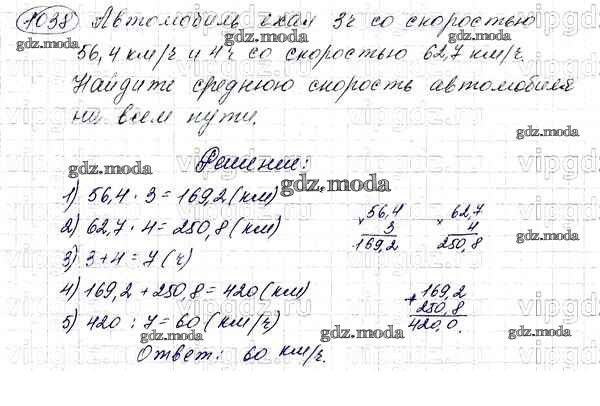 1038 Автомобиль ехал 3ч со скоростью
56,4 км/ч и 4ч со скоростью 62,7 км/ч.
Найдите среднюю скорость автомобиля
на всем пути.
Решение:
1) 56,4 · 3 = 169,2 (км)
2) 62,7 · 4 = 250,8 (км)
3) 3+4 = 7 (ч)
4) 169,2 + 250,8 = 420 (км)
5) 420 : 7 = 60 (км/ч)
Ответ: 60 км/ч.
× 56,4
3
169,2
× 62,7
4
250,8
+ 169,2
250,8
420,0
gdz.moda
gdz.moda
gdz.moda
gdz.moda
gdz.moda
gdz.moda
gdz.moda
gdz.moda
gdz.moda
gdz.moda
gdz.moda
gdz.moda